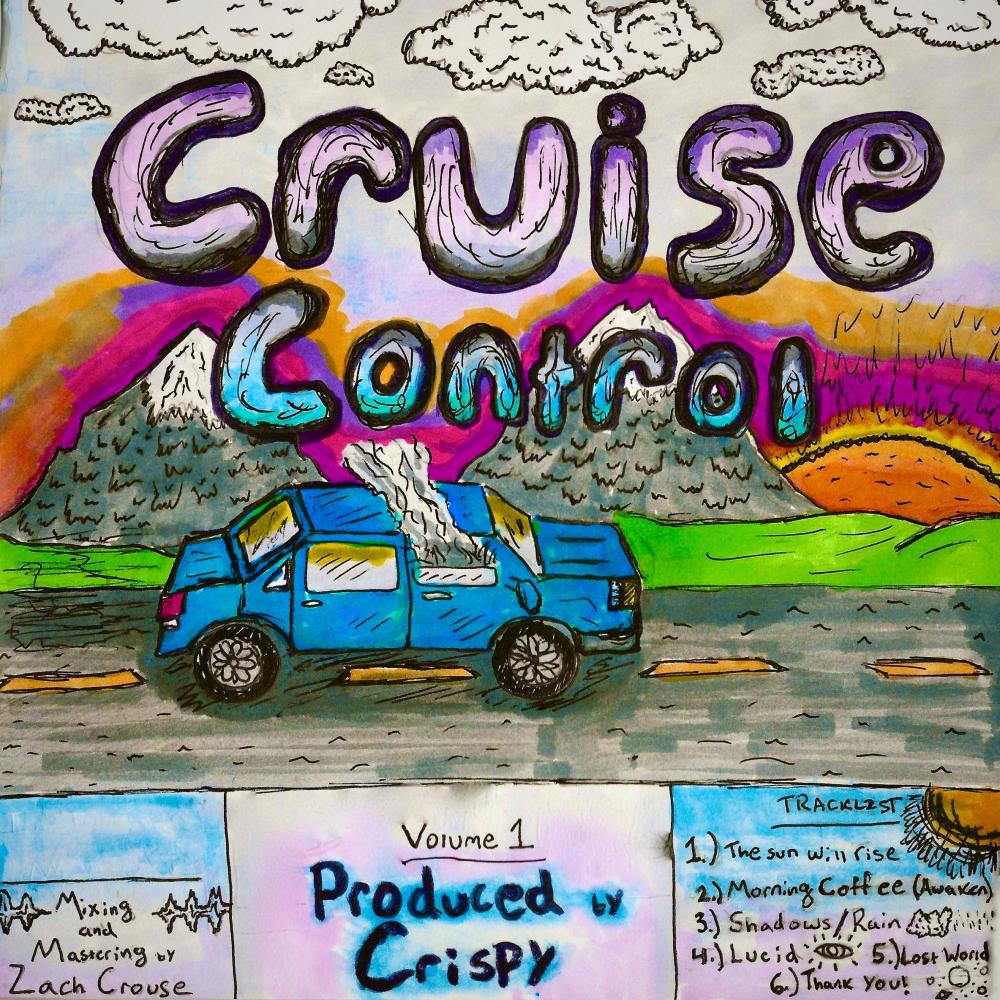 Cruise
Control
Mixing
and
Mastering by
Zach Crouse
Volume 1
Produced by
Crispy
TRACKLIST
1.) The sun will rise
2.) Morning Coffee (Awaken)
3.) Shadows/Rain
4.) Lucid 5.) Lost World
6.) Thank you!